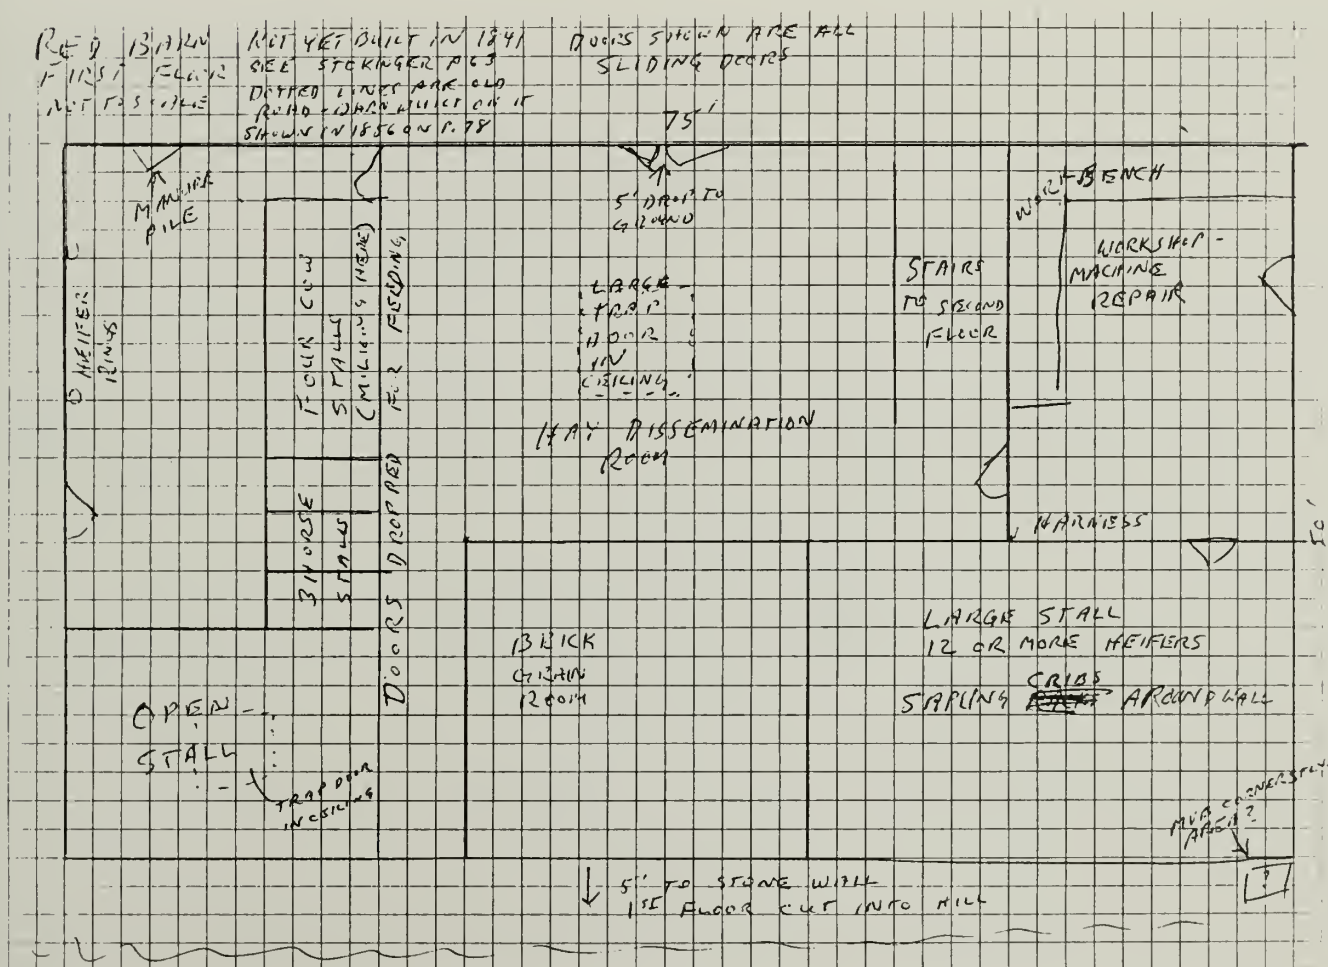 RED BARN
FIRST FLOOR
NOT TO SCALE
NOT YET BUILT IN 1841
SEE STEKINGER P. 63
DOTTED LINES ARE OLD
ROAD - BARN BUILT ON IT
SHOWN IN 1856 ON P. 78
DOORS SHOWN ARE ALL
SLIDING DOORS
75'
MANURE
PILE
5' DROP TO
GROUND
WORK BENCH
WORKSHOP -
MACHINE
REPAIR
HEIFER
RINGS
FOUR COW
STALLS
(MILKING HERE)
DOORS DROPPED FOR FEEDING
LARGE
TRAP
DOOR
IN
CEILING
STAIRS
TO SECOND
FLOOR
HAY DISSEMINATION
ROOM
3 HORSE
STALLS
HARNESS
50'
BRICK
GRAIN
ROOM
LARGE STALL
12 OR MORE HEIFERS
CRIBS
SAPLING AROUND WALL
OPEN
STALL
TRAP DOOR
IN CEILING
AREA?
?
5' TO STONE WALL
1ST FLOOR CUT INTO HILL